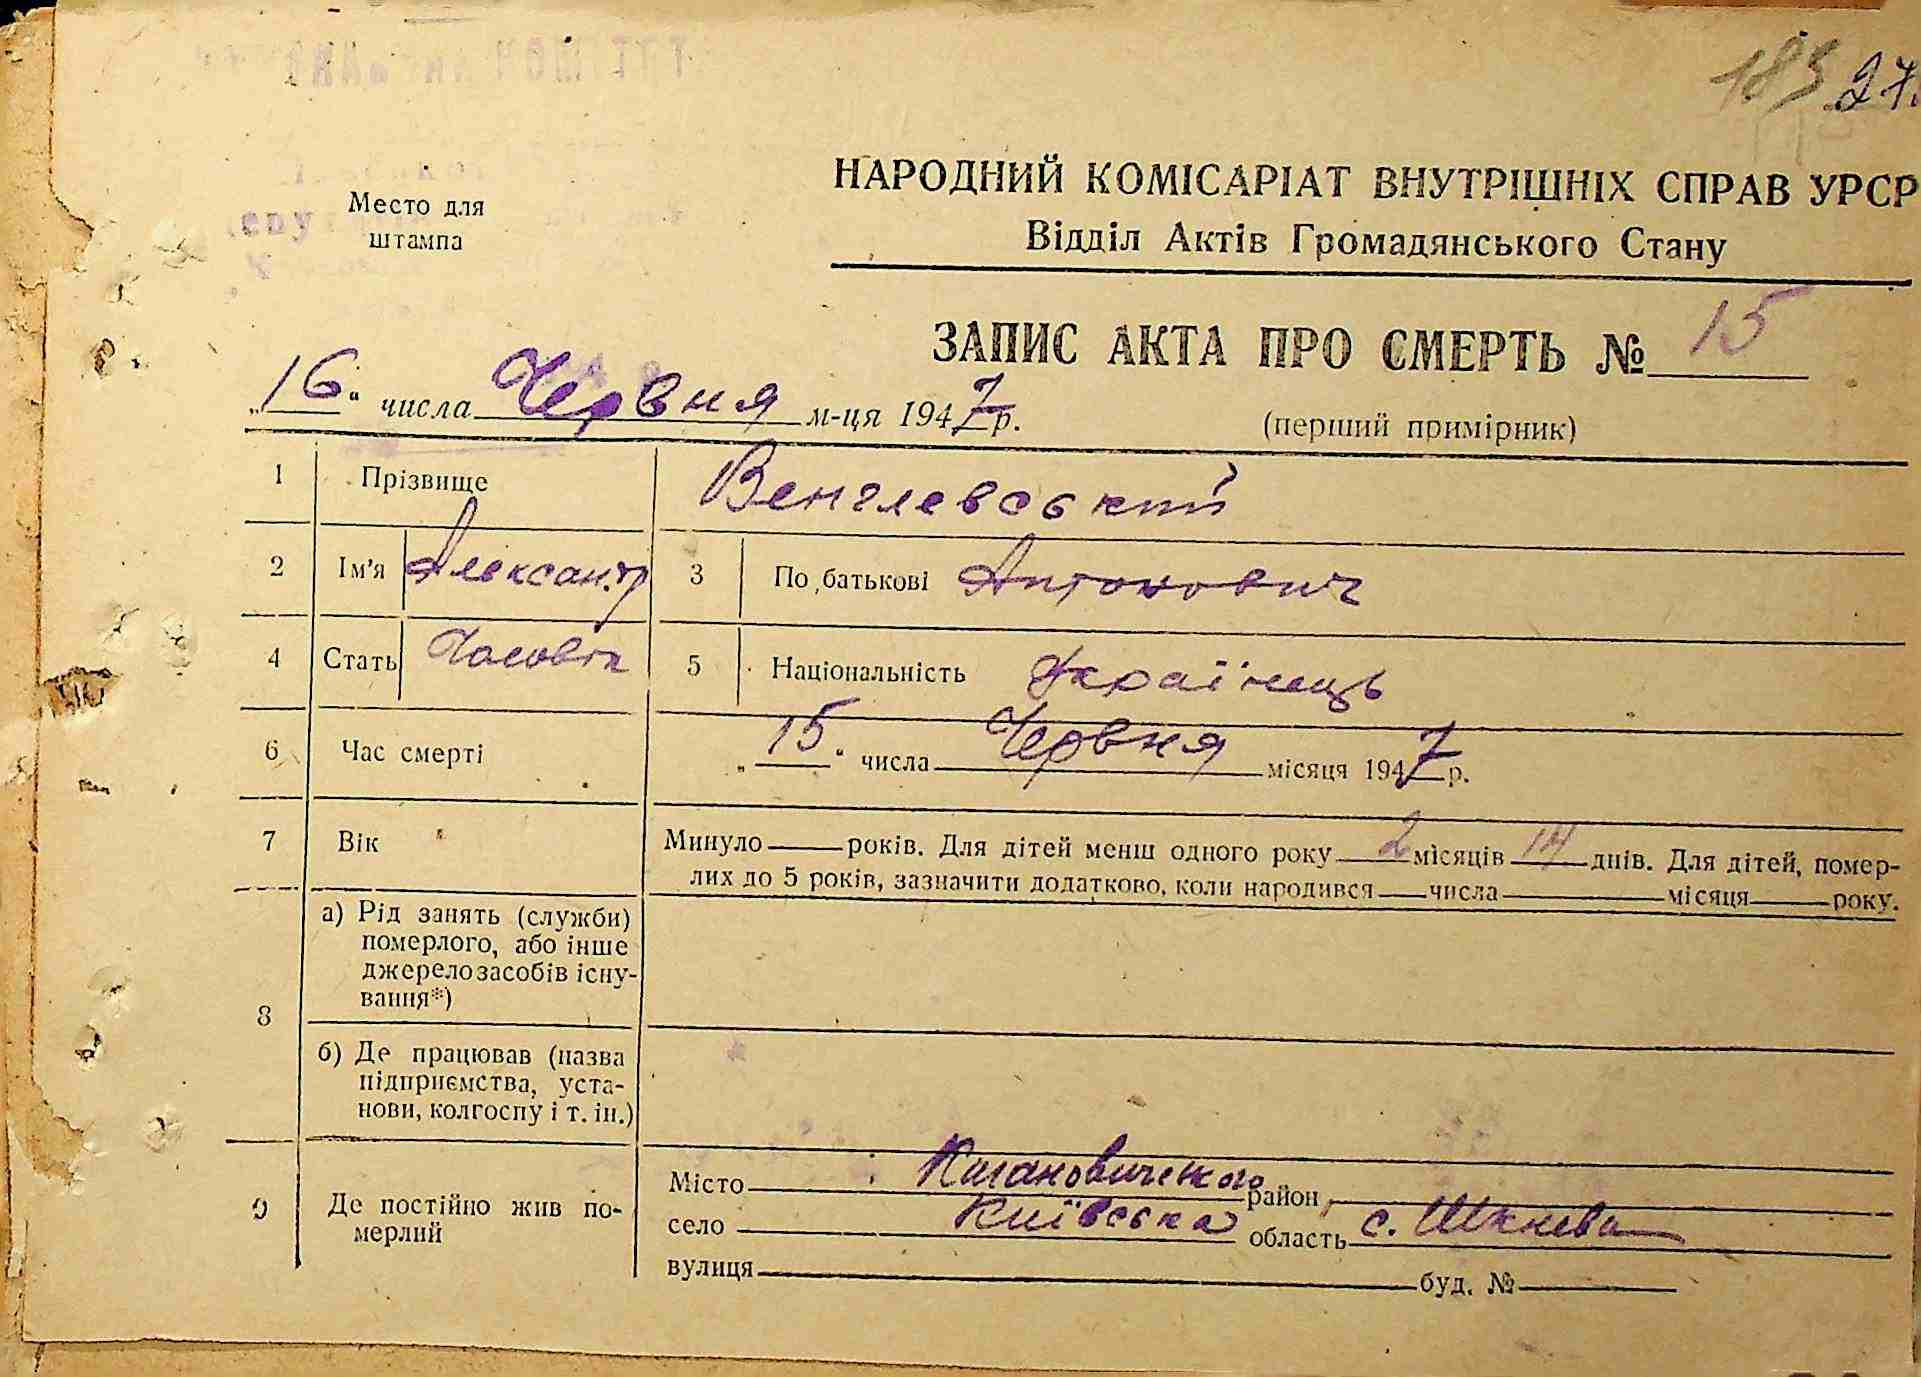 185 27
Место для
штампа
НАРОДНИЙ КОМІСАРІАТ ВНУТРІШНІХ СПРАВ УРСР
Відділ Актів Громадянського Стану
ЗАПИС АКТА ПРО СМЕРТЬ № 15
„16“ числа Червня м-ця 1947 р.
(перший примірник)
1 Прізвище Венглевський
2 Ім'я Александр 3 По батькові Антонович
4 Стать Чоловік 5 Національність Українець
6 Час смерті „15“ числа Червня місяця 1947 р.
7 Вік Минуло — років. Для дітей менш одного року 2 місяців 14 днів. Для дітей, помер-
лих до 5 років, зазначити додатково, коли народився числа місяця року.
8 а) Рід занять (служби)
померлого, або інше
джерело засобів існу-
вання*)
б) Де працював (назва
підприємства, уста-
нови, колгоспу і т. ін.)
9 Де постійно жив по-
мерлий
Місто Кагановичського район
село Київська область с.
вулиця буд. №